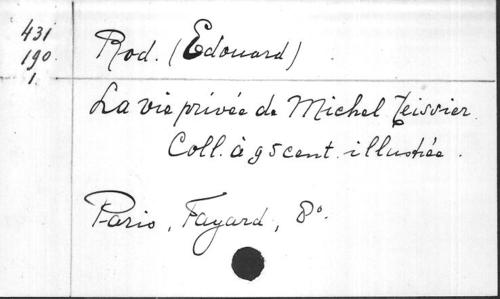 431
190.
1.
Rod. (Edouard)
La vie privée de Michel Teissier.
Coll. à 95 cent. illustrée.
Paris, Fayard, 8°.